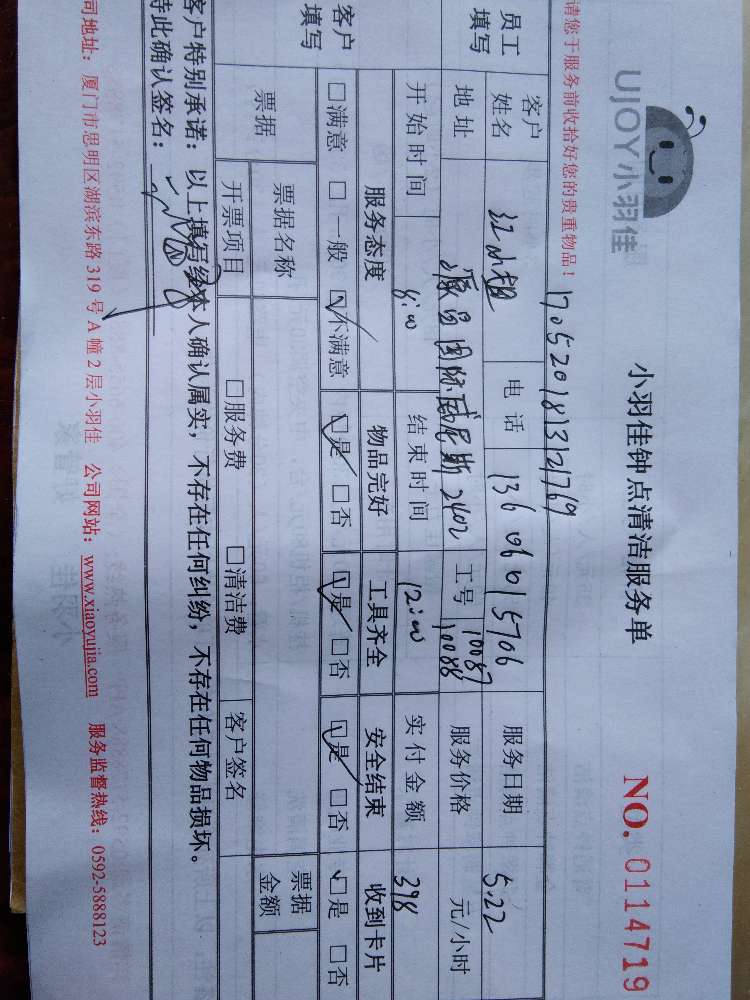 UJOY小羽佳
小羽佳钟点清洁服务单
NO. 0114719
请您于服务前收拾好您的贵重物品！
1705201813121769
员工填写
客户姓名 江小姐 电话 13606015706 服务日期 5.22
地址 源昌国际威尼斯2402 工号 10087 10088 服务价格 元/小时
开始时间 8:00 结束时间 12:00 实付金额 398
客户填写
服务态度 物品完好 工具齐全 安全结束 收到卡片
□满意 □一般 □不满意 □是 □否 □是 □否 □是 □否 □是 □否
票据 票据名称 票据金额
开票项目 □服务费 □清洁费 客户签名
客户特别承诺：以上填写经本人确认属实，不存在任何纠纷，不存在任何物品损坏。
特此确认签名：
司地址：厦门市思明区湖滨东路 319 号 A 幢 2 层小羽佳 公司网站：www.xiaoyujia.com 服务监督热线：0592-5888123